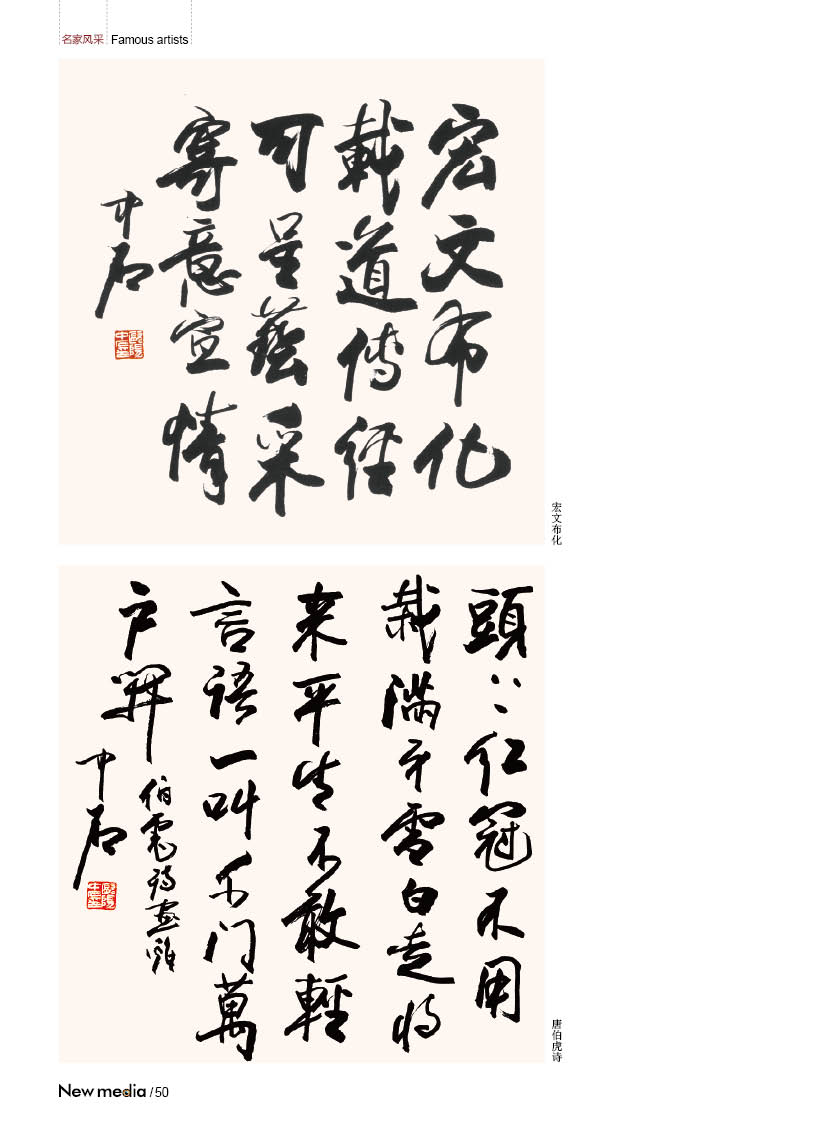 名家风采 Famous artists
宏文布化
載道傳經
可呈藝采
寄意宣情
中石
宏文布化
頭上红冠不用
裁满身雪白走将
来平生不敢輕
言語一叫千门萬
户開
伯虎詩画雞
中石
唐伯虎诗
New media / 50